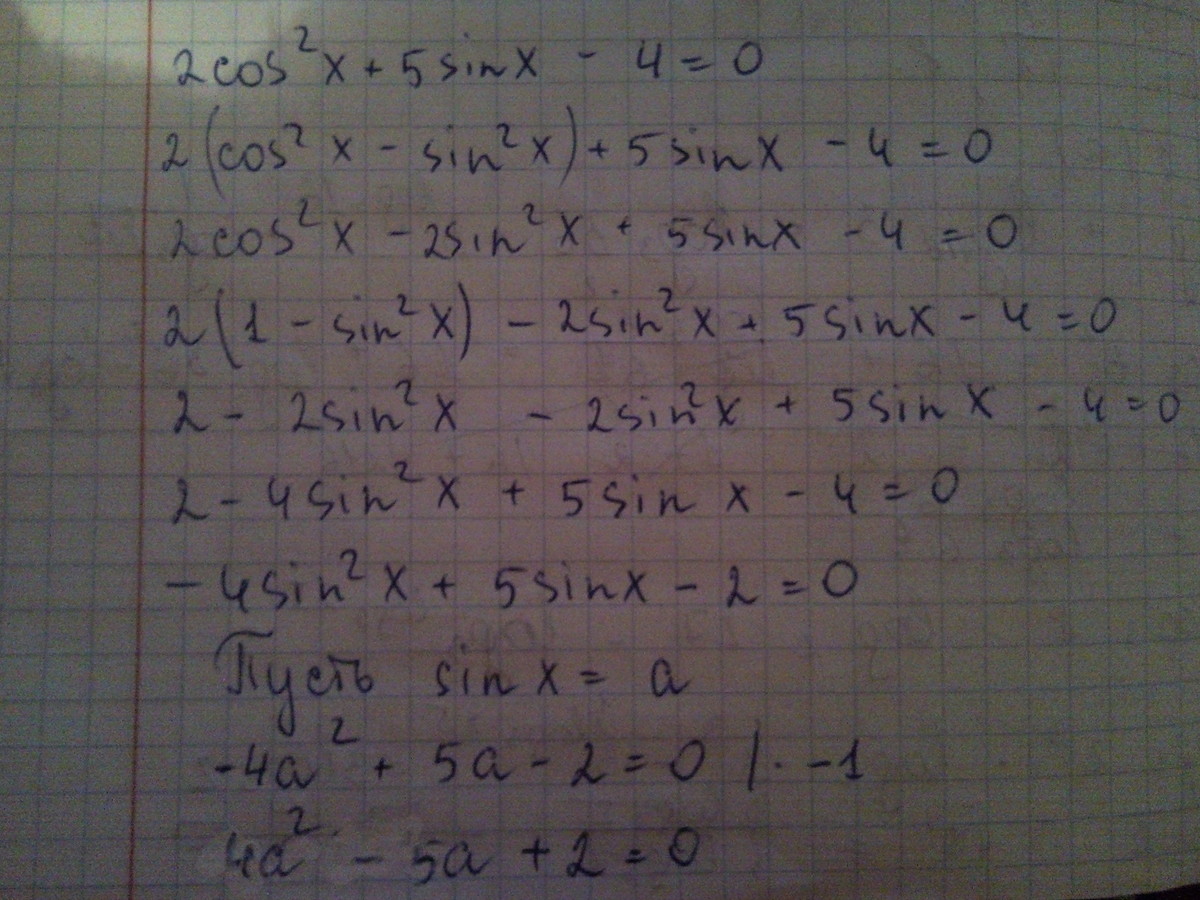 2cos²x + 5sinx - 4 = 0
2(cos²x - sin²x) + 5sinx - 4 = 0
2cos²x - 2sin²x + 5sinx - 4 = 0
2(1 - sin²x) - 2sin²x + 5sinx - 4 = 0
2 - 2sin²x - 2sin²x + 5sinx - 4 = 0
2 - 4sin²x + 5sin x - 4 = 0
- 4sin²x + 5sinx - 2 = 0
Пусть sin x = a
-4a² + 5a - 2 = 0 |· -1
4a² - 5a + 2 = 0